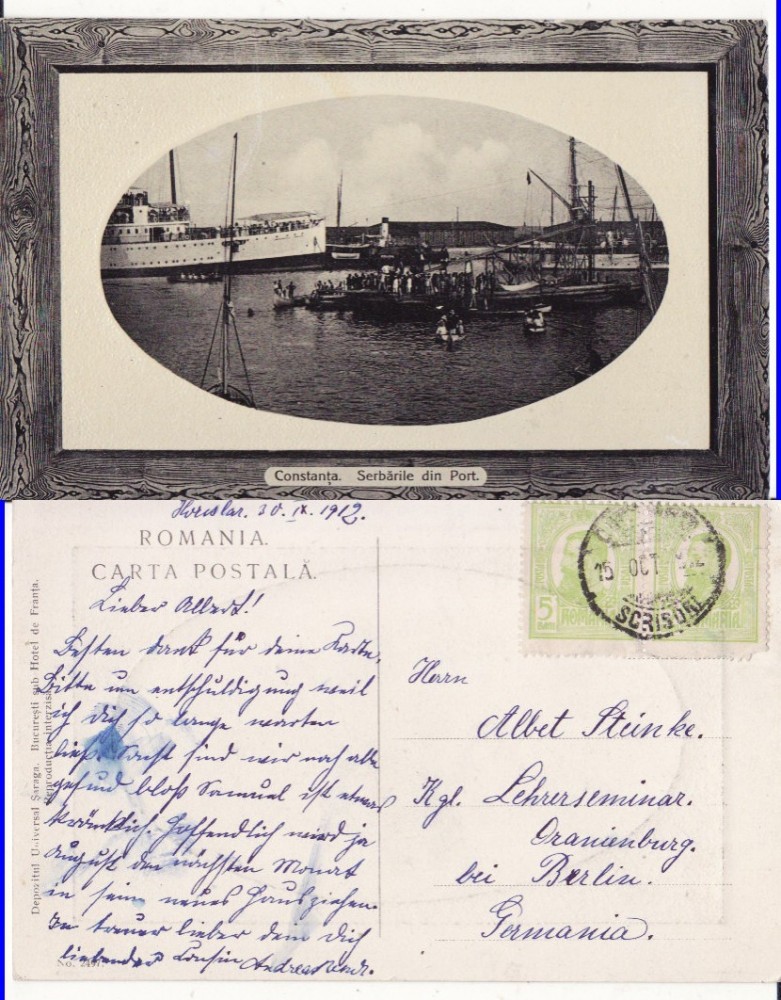 Constanța. Serbările din Port.
30. IX. 1912.
ROMANIA.
CARTA POSTALĂ.
Lieber Albert!
Besten dank für deine Karte,
Bitte um entschuldigung weil
ich dich so lange warten
ließ. Sonst sind wir noch alle
gesund bloß Samuel ist etwas
kränklich. Hoffendlich wird ja
August den nächsten Monat
in sein neues Haus ziehen.
In treuer lieber dein dich
liebender Cousin Andreas
Depozitul Universal Șaraga. București sub Hotel de Franța.
Reproducția interzisă
No.
5
ROMANIA
15 OCT
SCRISORI
Herrn
Albet Steinke.
Kgl. Lehrerseminar.
Oranienburg.
bei Berlin.
Germania.